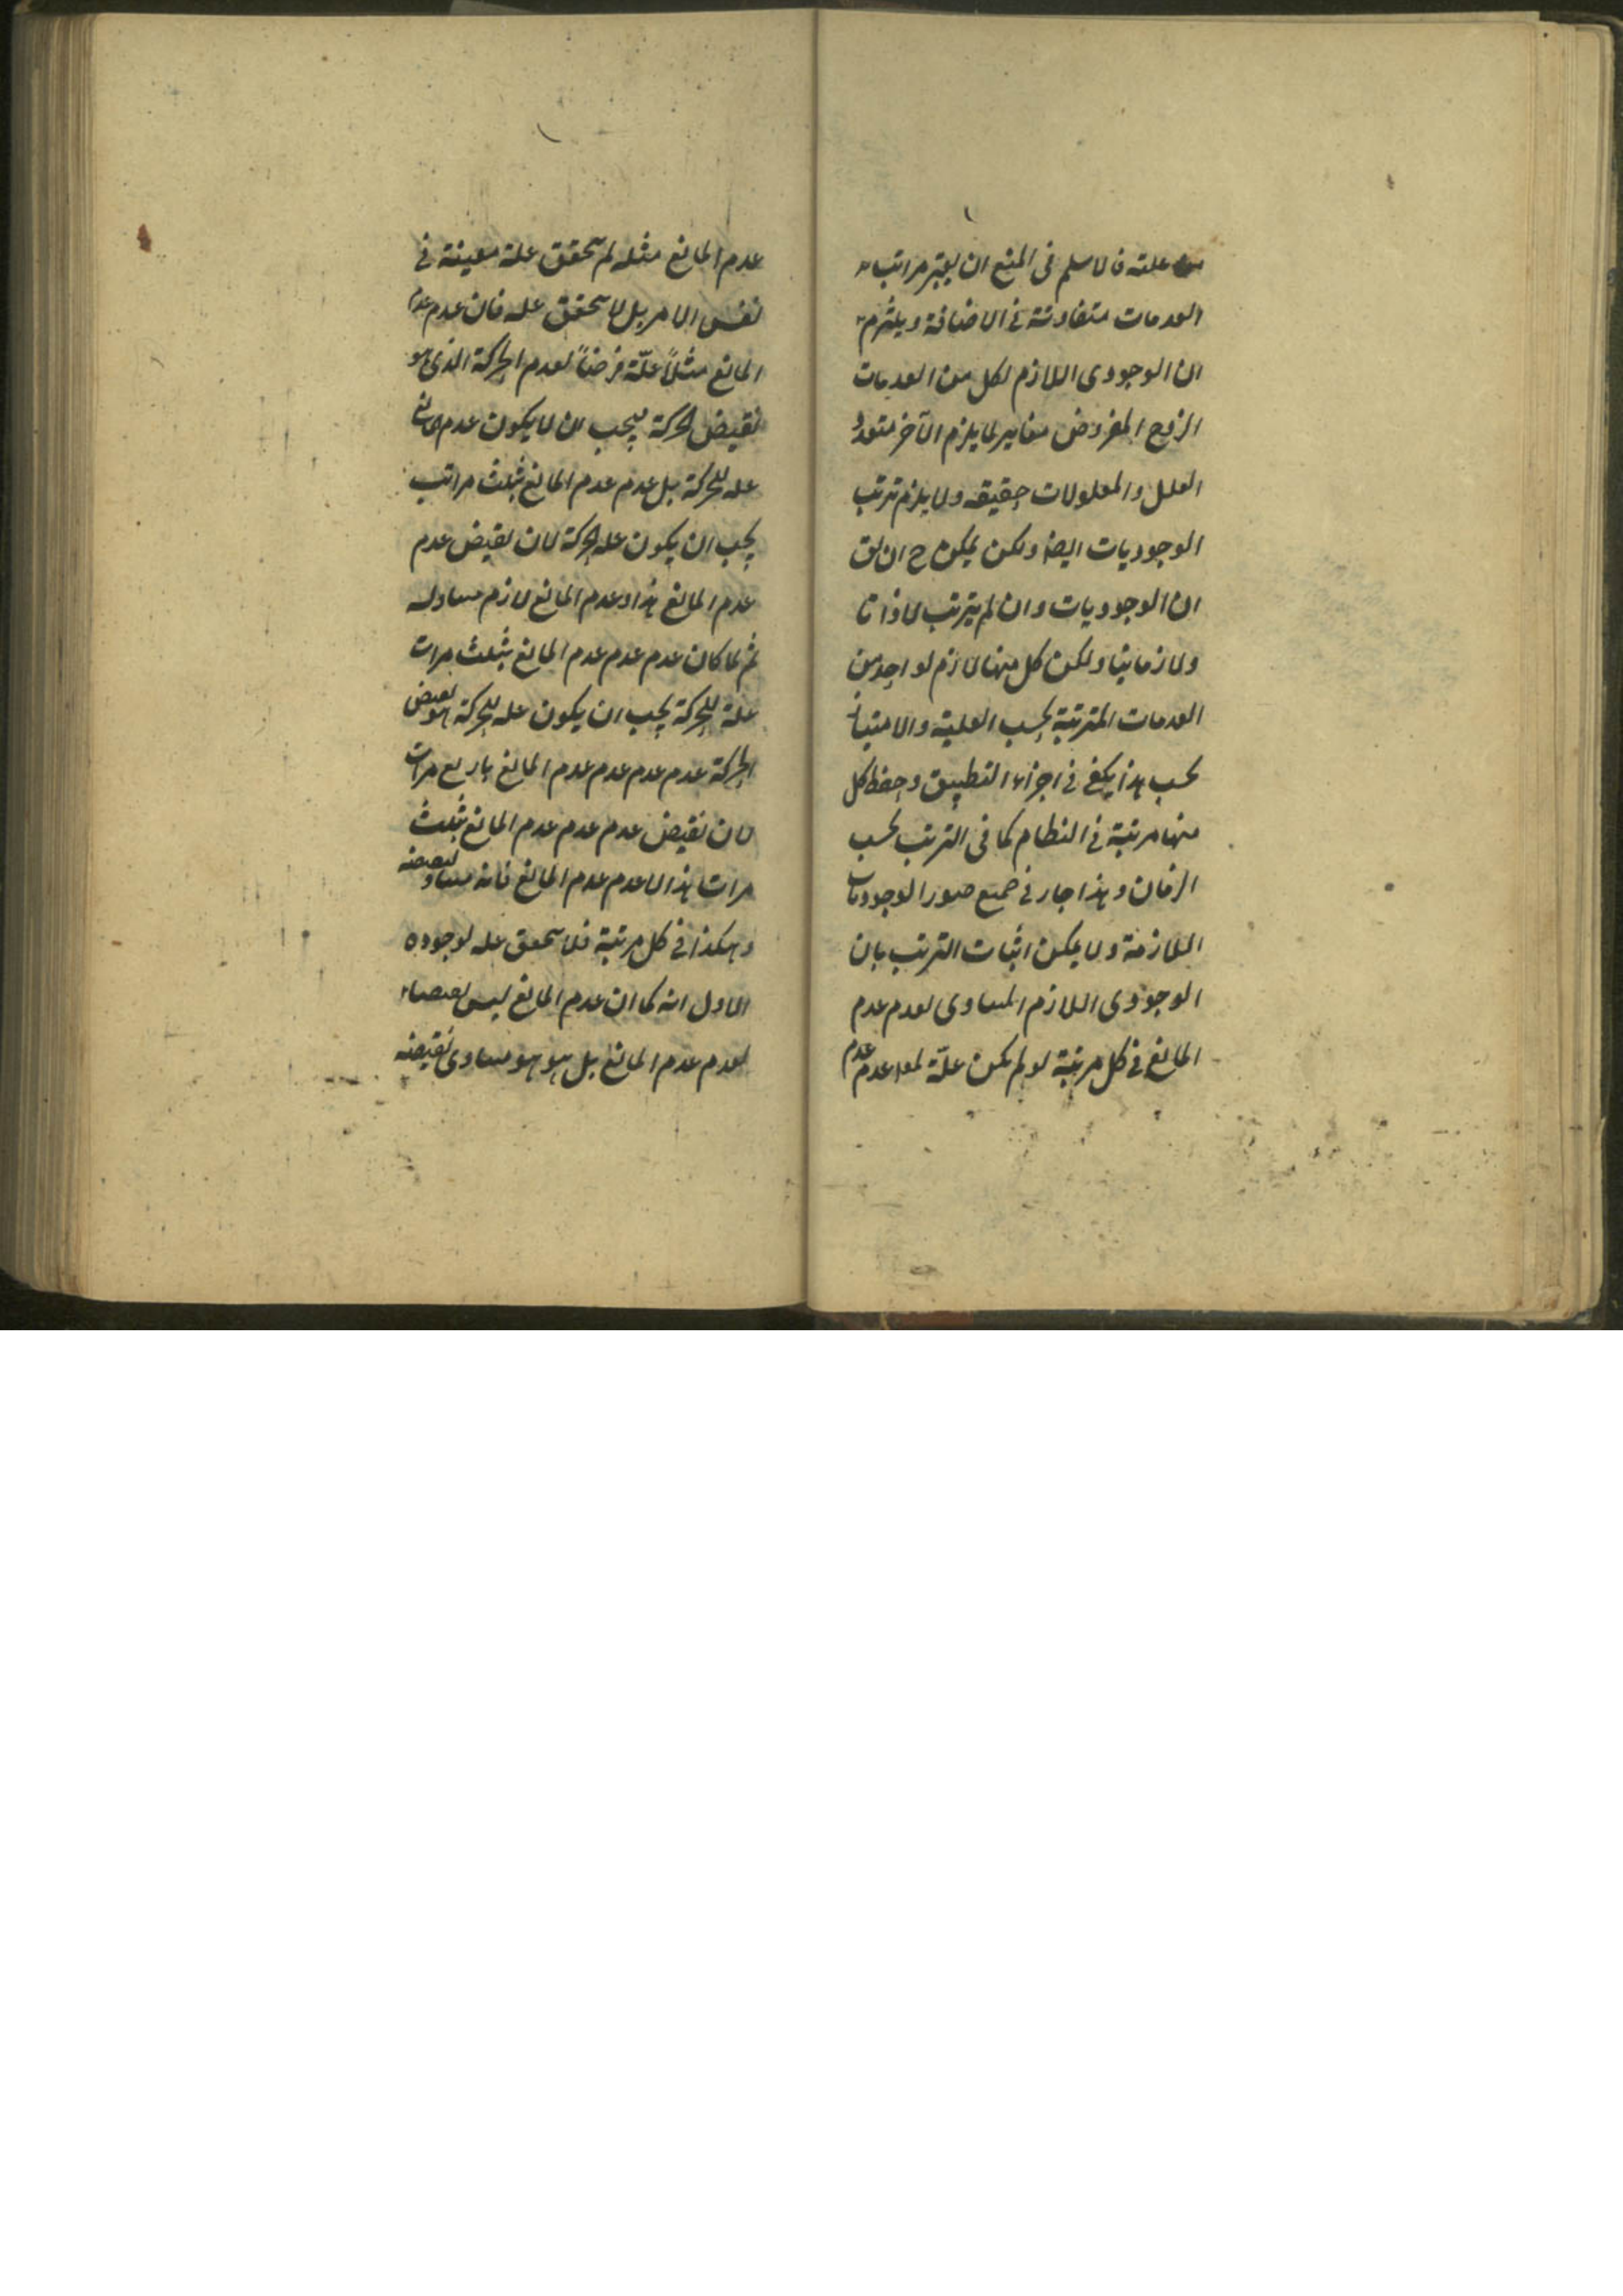 علته فالاسلم فى المنع ان يعتبر مراتب
العدمات متفاوتة فى الاضافة ويلتزم
ان الوجودى اللازم لكل من العدمات
الزوج المفروض مغاير لما يلزم الآخر فتعدد
العلل والمعلولات حقيقه ولا يلزم ترتب
الوجوديات ايضا ولكن يمكن ح ان يق
ان الوجوديات وان لم يترتب لا ذاتا
ولا زمانيا ولكن كل منها لازم لواحد من
العدمات المترتبة بحسب العلية والامتياز
بحسب هذا يكفى فى اجراء التطبيق وحفظ كل
منها مرتبة فى النظام كما فى الترتب بحسب
الزمان وهذا جار فى جميع صور الوجوديات
اللازمة ولا يمكن اثبات الترتب بان
الوجودى اللازم المساوى لعدم عدم
المانع فى كل مرتبة لو لم يكن علّة عدم عدم
عدم المانع مثله لم يتحقق علة معينة فى
نفس الامر بل لا يتحقق عله فان عدم عدم
المانع مثلاً علّة فرضاً لعدم الحركة الذى هو
نقيض الحركة فيجب ان لا يكون عدم المانع
عله للحركة بل عدم عدم المانع بثلث مراتب
يجب ان يكون عله الحركة لان نقيض عدم
عدم المانع هذا وعدم المانع لازم مساو له
ثم لما كان عدم عدم عدم المانع بثلث مرات
علة للحركة يجب ان يكون عله للحركة هو نقيض
الحركة عدم عدم عدم عدم المانع باربع مرات
لان نقيض عدم عدم عدم المانع بثلث
مرات هذا لا عدم عدم المانع فانه مساو لنقيضه
وهكذا فى كل مرتبة فلا يتحقق عله لوجوده
الاول انه كما ان عدم المانع ليس نقيضا
لعدم عدم المانع بل هو هو مساوى نقيضه